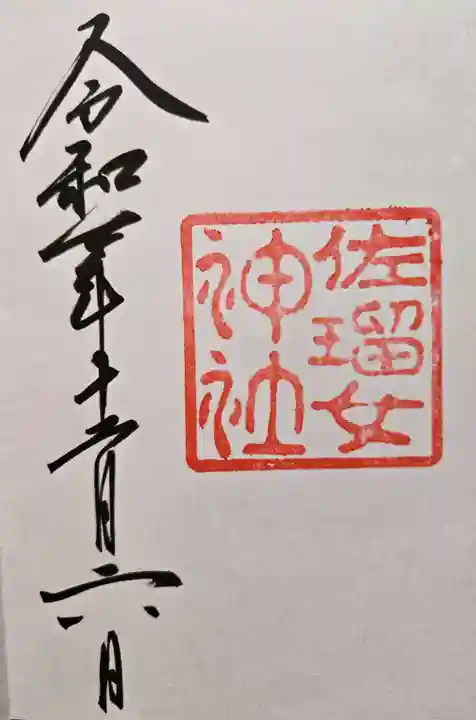 佐瑠女
神社
令和年十二月六日